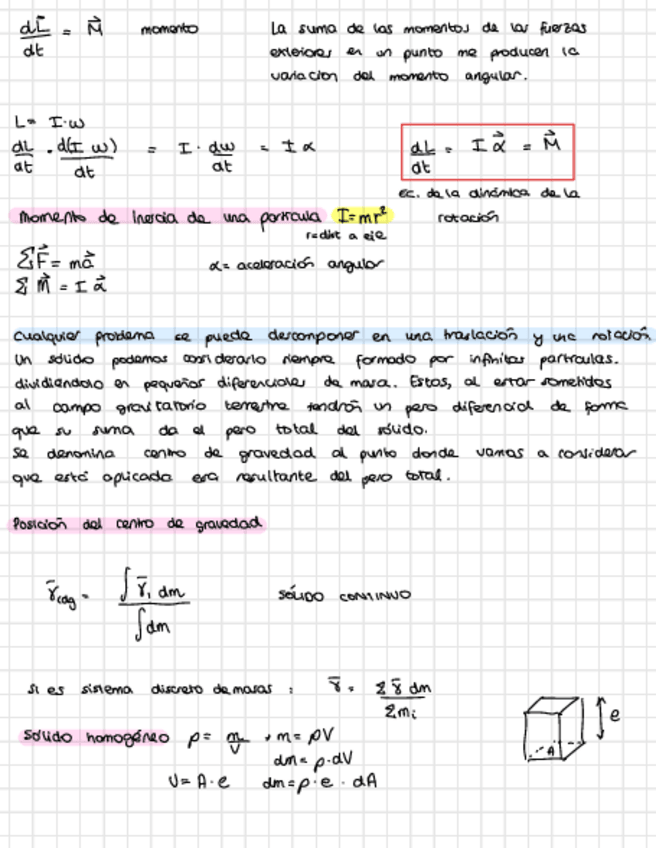 dL⃗/dt = M⃗ momento La suma de los momentos de las fuerzas
exteriores en un punto me producen la
variacion del momento angular.
L = I·ω
dL/dt . d(I ω)/dt = I · dω/dt = I α
dL/dt = I α⃗ = M⃗
ec. de la dinámica de la
rotación
Momento de inercia de una partícula I=mr²
r=dist a eje
ΣF⃗ = ma⃗ α= aceleración angular
Σ M⃗ = I α⃗
cualquier problema se puede descomponer en una traslación y una rotación
Un sólido podemos considerarlo siempre formado por infinitas partículas.
dividiendolo en pequeños diferenciales de masa. Estos, al estar sometidos
al campo gravitatorio terrestre tendrán un peso diferencial de forma
que su suma da el peso total del sólido.
Se denomina centro de gravedad al punto donde vamos a considerar
que está aplicada esa resultante del peso total.
Posición del centro de gravedad
r̄cdg = ∫ r̄₁ dm / ∫dm SÓLIDO CONTINUO
si es sistema discreto de masas : r̄ = Σ r̄ dm / Σmᵢ
Sólido homogéneo ρ = m/V → m = ρV
dm = ρ·dV
V = A·e dm = ρ·e·dA
e
A